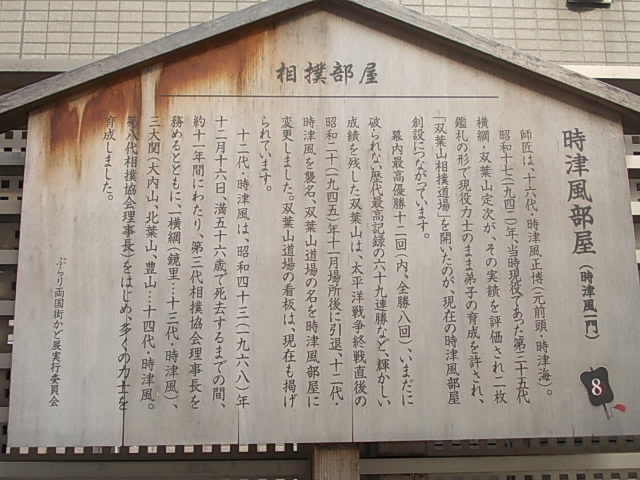 相撲部屋
時津風部屋(時津風一門)
8
師匠は、十六代・時津風正博(元前頭・時津海)。
昭和十七(一九四二)年、当時現役であった第三十五代
横綱・双葉山定次が、その実績を評価され、二枚
鑑札の形で現役力士のまま弟子の育成を許され、
「双葉山相撲道場」を開いたのが、現在の時津風部屋
創設につながっています。
幕内最高優勝十二回(内、全勝八回)、いまだに
破られない歴代最高記録の六十九連勝など、輝かしい
成績を残した双葉山は、太平洋戦争終戦直後の
昭和二十(一九四五)年十一月場所後に引退、十二代・
時津風を襲名、双葉山道場の名を時津風部屋に
変更しました。双葉山道場の看板は、現在も掲げ
られています。
十二代・時津風は、昭和四十三(一九六八)年
十二月十六日、満五十六歳で死去するまでの間、
約十一年間にわたり、第三代相撲協会理事長を
務めるとともに、一横綱(鏡里…十三代・時津風)、
三大関(大内山、北葉山、豊山…十四代・時津風。
第八代相撲協会理事長)をはじめ、多くの力士を
育成しました。
ぶらり両国街かど展実行委員会